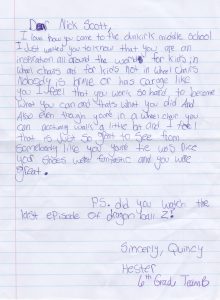 Dear Nick Scott,
I know how you came to the dunkirk middle school
I just wanted you to know that you are an
inspiration all around the world for kids in
wheel chairs and for kids not in wheel chairs
Nobody is nice or has carage like
you I feel that you work so hard to become
what you can and thats what you did And
Also even though you're in a wheel chair you
can actually walk a little bit and I feel
that is just so great to see from
somebody like you. You're the was nice
your shoes were fantastic and you were
great.
P.S. did you watch the
last episode or dragon ball Z!
Sincerly, Quincy
Hester
6th Grade Team B